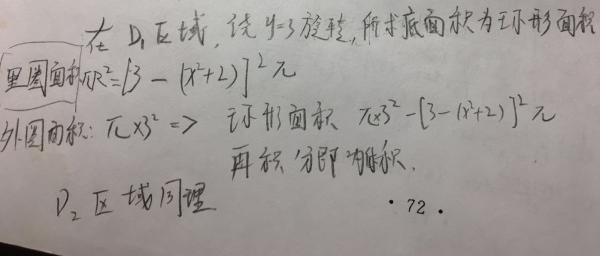 在 D₁ 区域, 绕 y=3 旋转, 所求底面积为环形面积
里圈面积 πR²=[3-(x²+2)]²π
外圈面积: π×3² => 环形面积 π×3²-[3-(x²+2)]²π
再积分即为体积.
D₂ 区域同理
· 72 ·